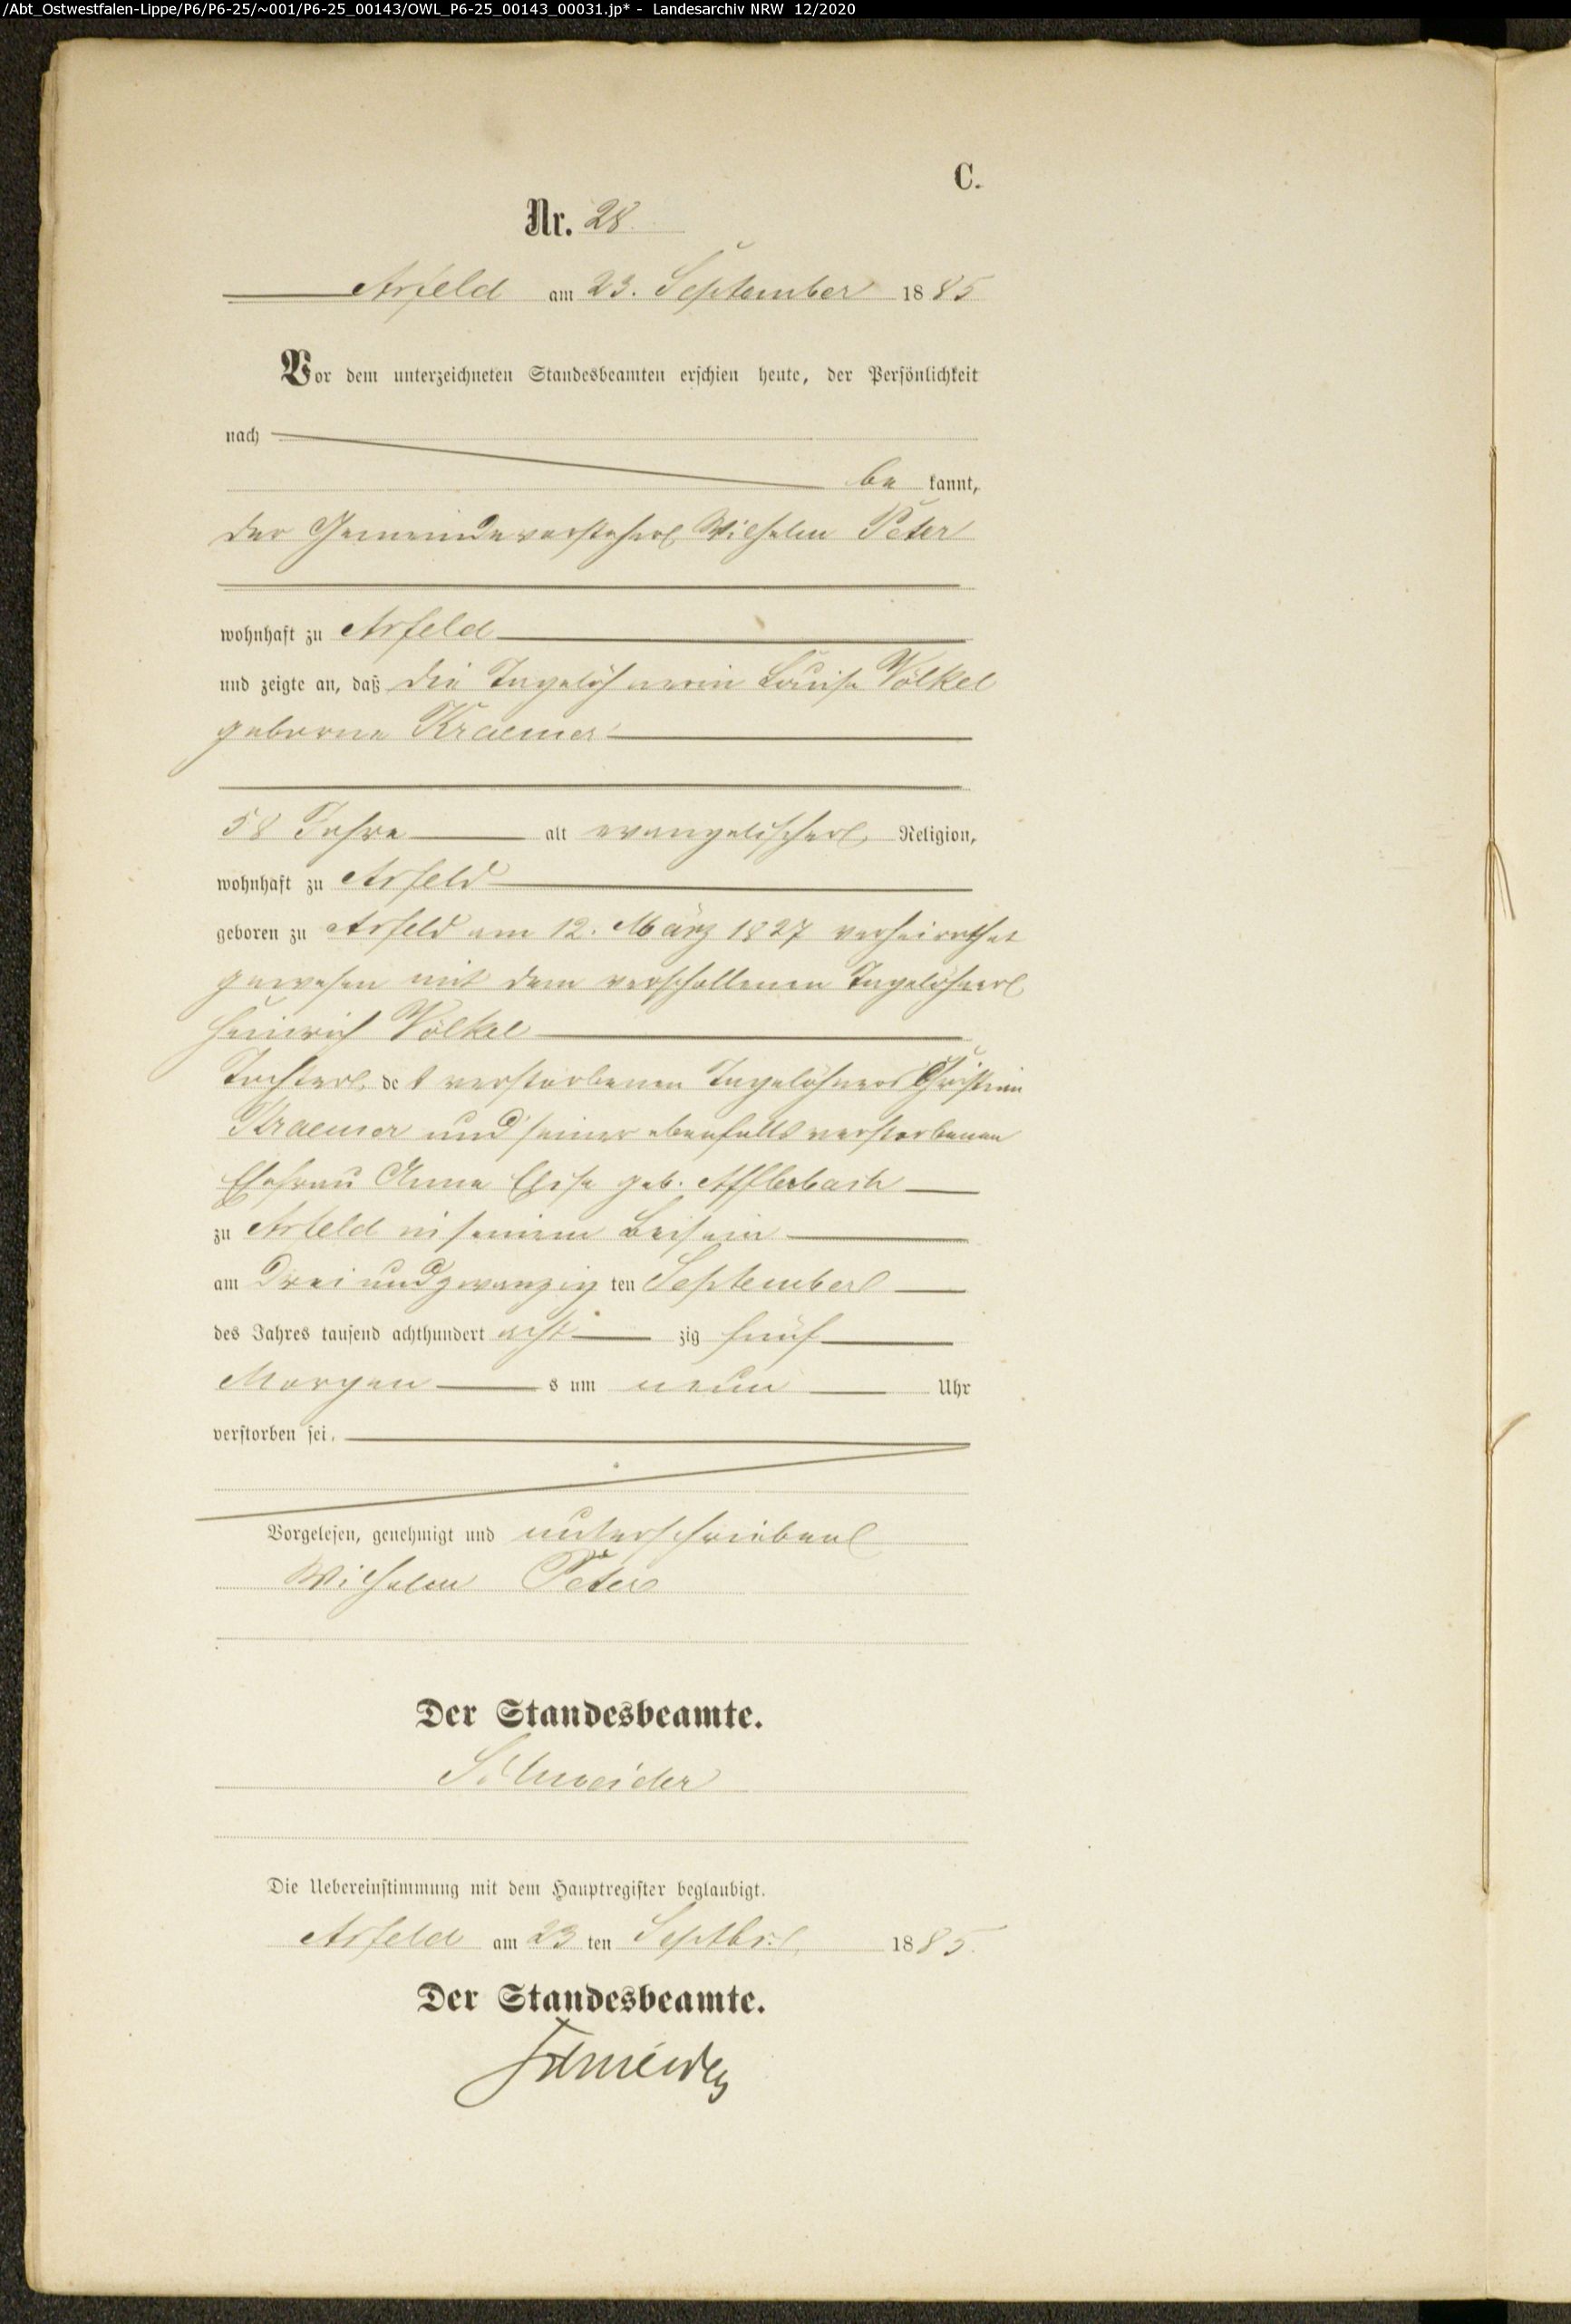 /Abt_Ostwestfalen-Lippe/P6/P6-25/~001/P6-25_00143/OWL_P6-25_00143_00031.jp* - Landesarchiv NRW 12/2020
C.
Nr. 28.
Arfeld am 23. September 1885
Vor dem unterzeichneten Standesbeamten erschien heute, der Persönlichkeit
nach
be kannt,
der Gemeindevorsteher Wilhelm Peter
wohnhaft zu Arfeld
und zeigte an, daß die Tagelöhnerin Louise Völkel
geborne Kraemer
58 Jahre alt evangelischer Religion,
wohnhaft zu Arfeld
geboren zu Arfeld am 12. März 1827 verheirathet
gewesen mit dem verschollenen Tagelöhner
Heinrich Völkel
Tochter des verstorbenen Tagelöhners Christian
Kraemer und seiner ebenfalls verstorbenen
Ehefrau Anna Elise geb. Afflerbach
zu Arfeld in seinem Beisein
am Drei und zwanzig ten September
des Jahres tausend achthundert acht zig fünf
Morgen s um neun Uhr
verstorben sei.
Vorgelesen, genehmigt und unterschrieben
Wilhelm Peter
Der Standesbeamte.
Schneider
Die Uebereinstimmung mit dem Hauptregister beglaubigt.
Arfeld am 23 ten Septbr. 1885.
Der Standesbeamte.
Schneider